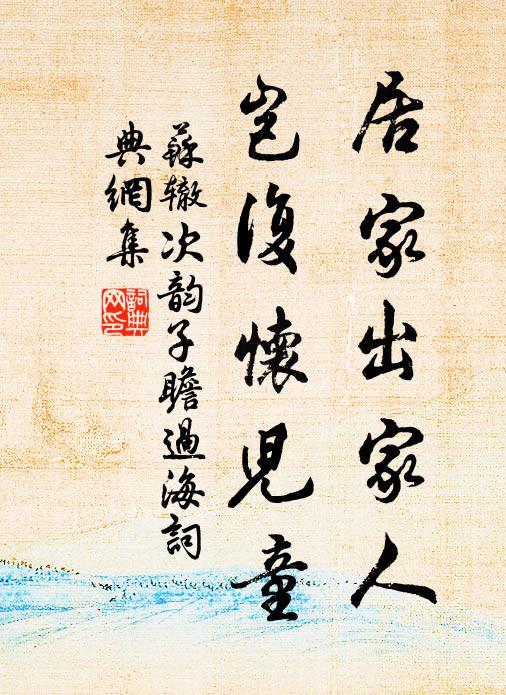 居家出家人
岂復懷児童
蘇辙次韵子瞻過海詞
典網集
詞典
网印